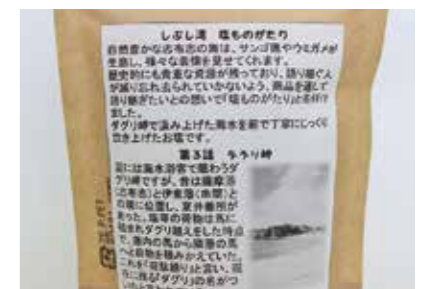 しぶし湾 塩ものがたり
自然豊かな志布志の海は、サンゴ礁やウミガメが
生息し、様々な表情を見せてくれます。
歴史的にも貴重な資源が残っており、語り継ぐ人
が減り忘れ去られていかないよう、商品を通して
語り継ぎたいとの想いで「塩ものがたり」と名付け
ました。
ダグリ岬で汲み上げた海水を薪で丁寧にじっくり
炊き上げたお塩です。
第3話 ダグリ岬
には海水浴客で賑わうダ
グリ岬ですが、昔は薩摩藩
(志布志)と伊東藩(串間)と
の境に位置し、番所
があった。塩等の荷物は馬に
積まれダグリ越えをした時点
で、藩内の馬から隣藩の馬
へと荷物を積みかえていた。
これを「荷駄繰り」と言い、
に残る「ダグリ」の名がつ
PE P.PET